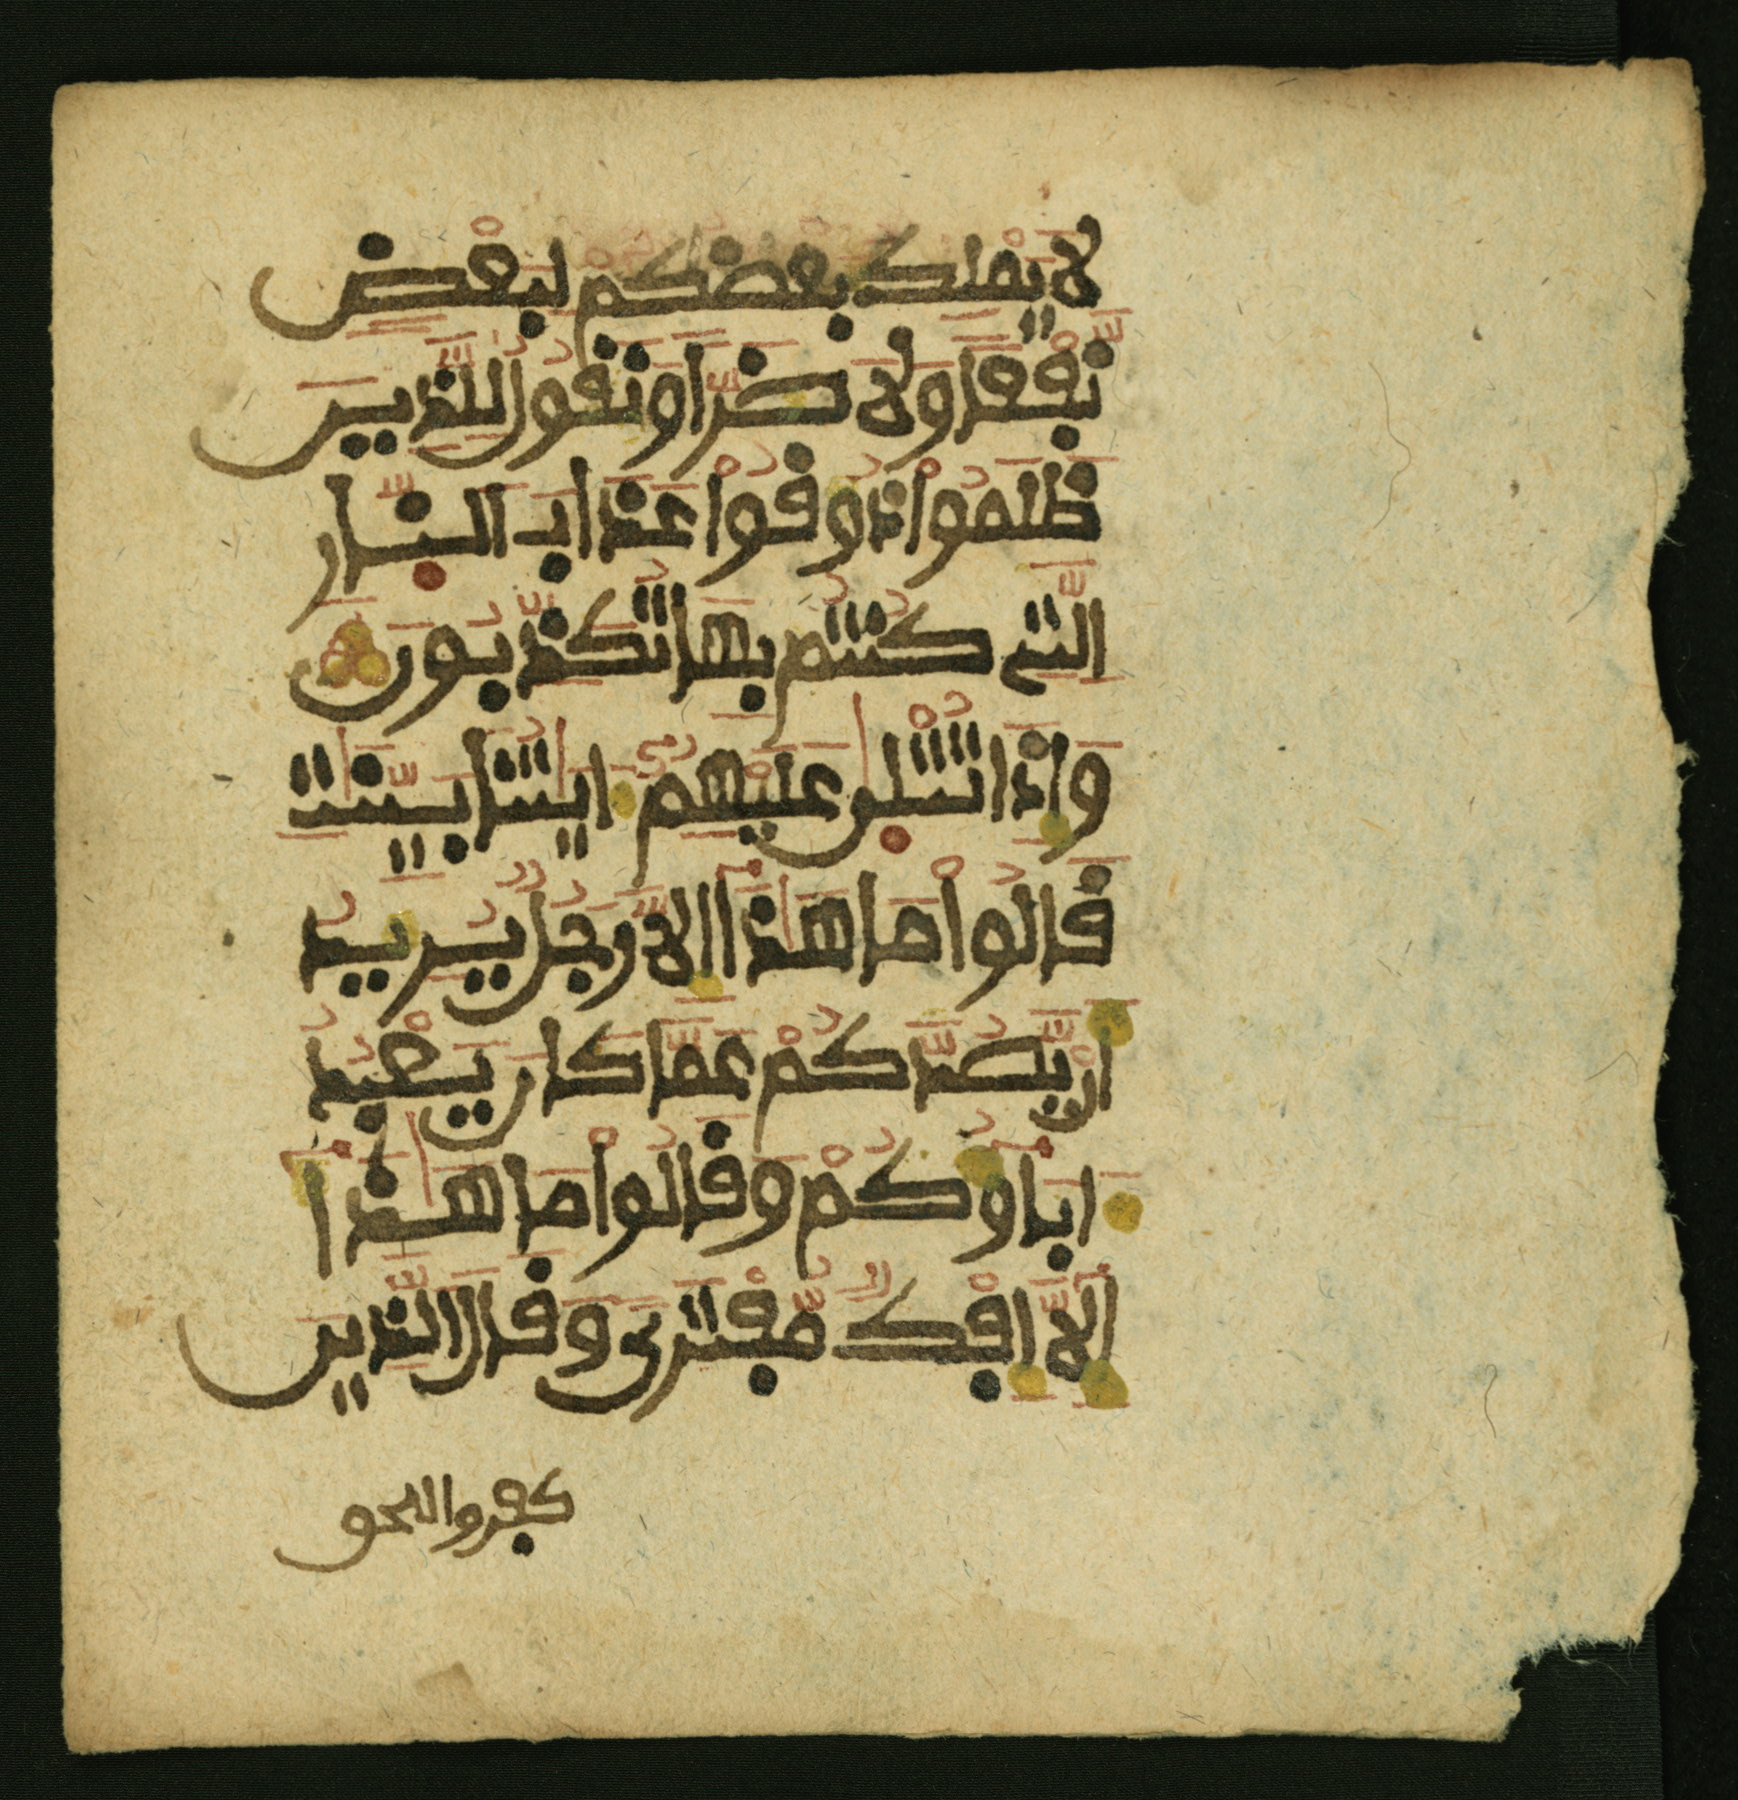 لَا يَمْلِكُ بَعْضُكُمْ لِبَعْضٖ
نَّفْعاً وَلَا ضَرّاً وَنَقُولُ لِلَّذِينَ
ظَلَمُواْ ذُوقُواْ عَذَابَ اَلنّ۪ارِ
اَلَّتِے كُنتُم بِهَا تُكَذِّبُونَ
وَإِذَا تُتْل۪يٰ عَلَيْهِمُۥٓ ءَايَٰتُنَا بَيِّنَٰتٖ
قَالُواْ مَا هَٰذَآ إِلَّا رَجُلٌ يُرِيدُ
أَنْ يَّصُدَّكُمْ عَمَّا كَانَ يَعْبُدُ
ءَابَآؤُكُمْ وَقَالُواْ مَا هَٰذَآ
إِلَّآ إِفْكٌ مُّفْتَرىً وَقَالَ اَلَّذِينَ
كفروا للحق